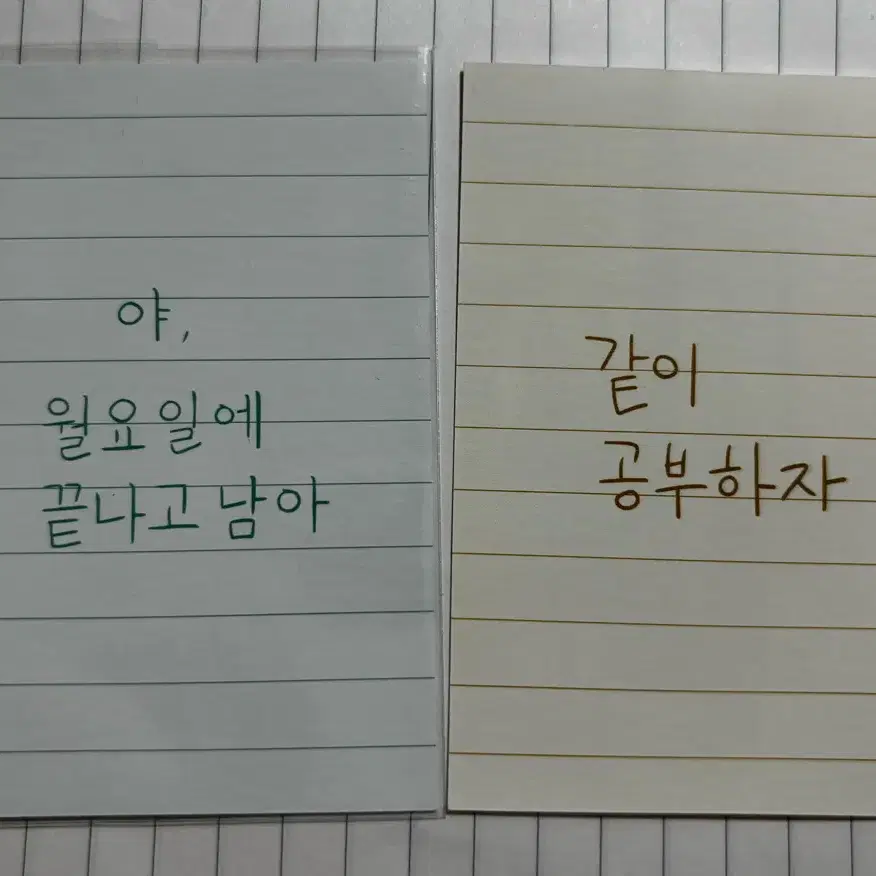 야,
월요일에
끝나고 남아
같이
공부하자